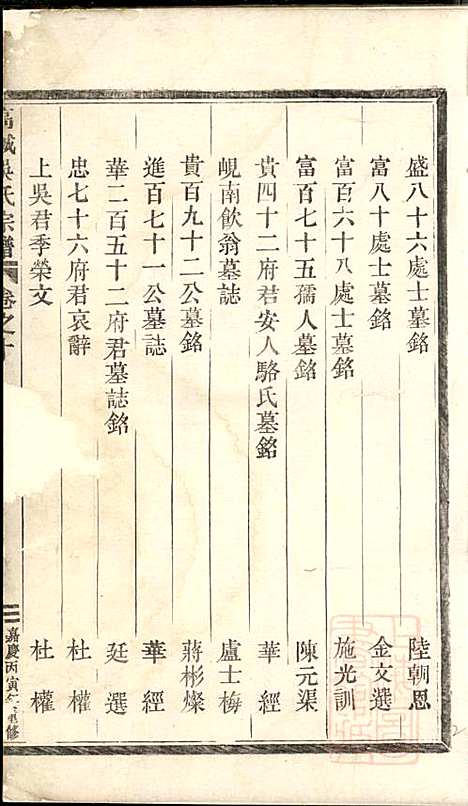 盛八十六處士墓銘 陸朝恩
富八十處士墓銘 金文選
富百六十八處士墓銘 施光訓
富百七十五孺人墓銘 陳元渠
貴四十二府君安人駱氏墓銘 華經
峴南飲翁墓誌 盧士梅
貴百九十二公墓銘 蔣彬燦
進百七十一公墓誌 華經
華二百五十二府君墓誌銘 廷選
忠七十六府君哀辭 杜權
上吳君季榮文 杜權
高城吳氏宗譜 卷之十 二 嘉慶丙寅年重修